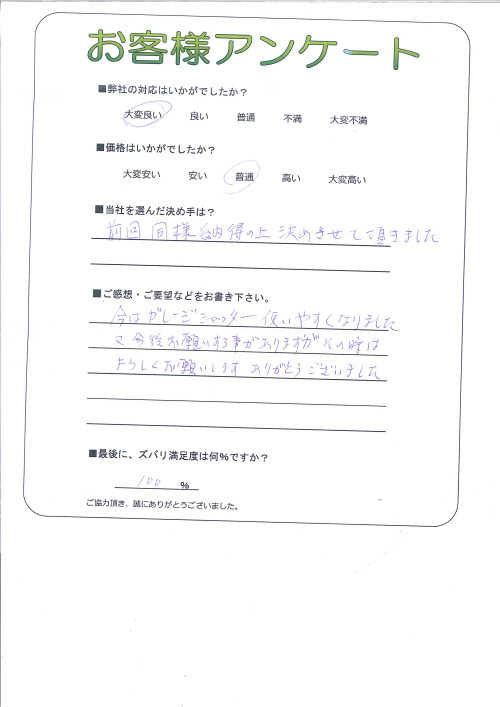 お客様アンケート
■弊社の対応はいかがでしたか？
大変良い 良い 普通 不満 大変不満
■価格はいかがでしたか？
大変安い 安い 普通 高い 大変高い
■当社を選んだ決め手は？
前回同様納得の上決めさせて頂きました
■ご感想・ご要望などをお書き下さい。
今はガレージシャッター使いやすくなりました
又今後お願いする事がありますが その時は
よろしくお願いします ありがとうございました
■最後に、ズバリ満足度は何％ですか？
100 ％
ご協力頂き、誠にありがとうございました。